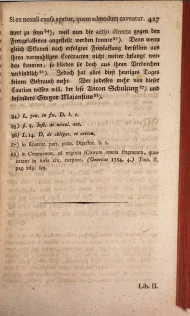 Si ex noxali causa agatur, quem admodum caveatur. 427
wert zu seyn 84), weil nun die actio directa gegen den
Freygelassenen angestellt werden konnte 85). Denn wenn
gleich Sklaven nach erfolgter Freylassung derselben aus
ihren vormahligen Contracten nicht weiter belangt wer-
den konnten; so blieben sie doch aus ihren Verbrechen
verbindlich 86). Jedoch hat alles dieß heutiges Tages
keinen Gebrauch mehr. Wer indessen mehr von dieser
Caution wissen will, der lese Anton Schulting 87) und
besonders Gregor Majansius 88).
84) L. pen. in fin. D. h. t.
85) §. 5. Inst. de noxal. act.
86) L. 14. D. de obligat. et action.
87) in Enarrat. part. prim. Digestor. h. t.
88) in Comment. ad triginta ICtorum omnia fragmenta, quae
extant in iuris civ. corpore. (Genevae 1764. 4.) Tom. II.
pag.
Lib. II.